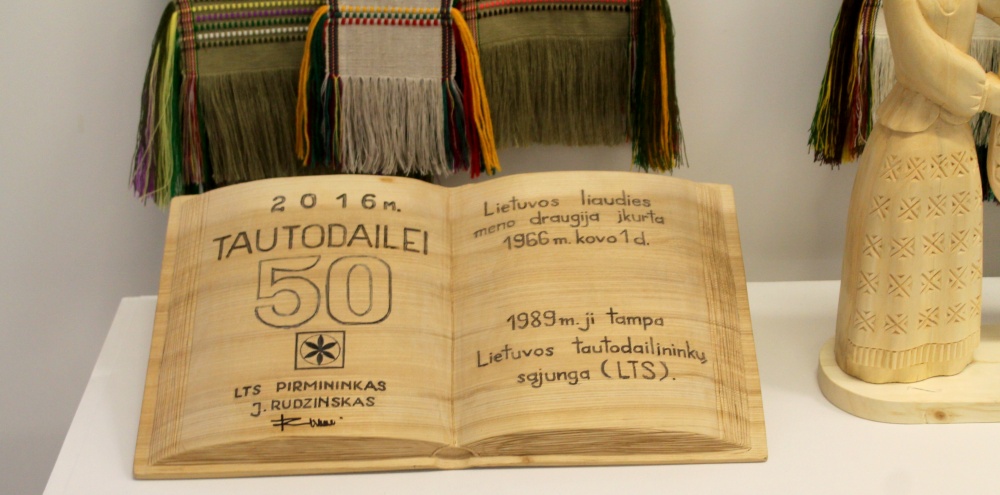 2016m.
TAUTODAILEI
50
LTS PIRMININKAS
J. RUDZINSKAS
Lietuvos liaudies
meno draugija įkurta
1966 m. kovo 1 d.
1989 m. ji tampa
Lietuvos tautodailininkų
sąjunga (LTS).